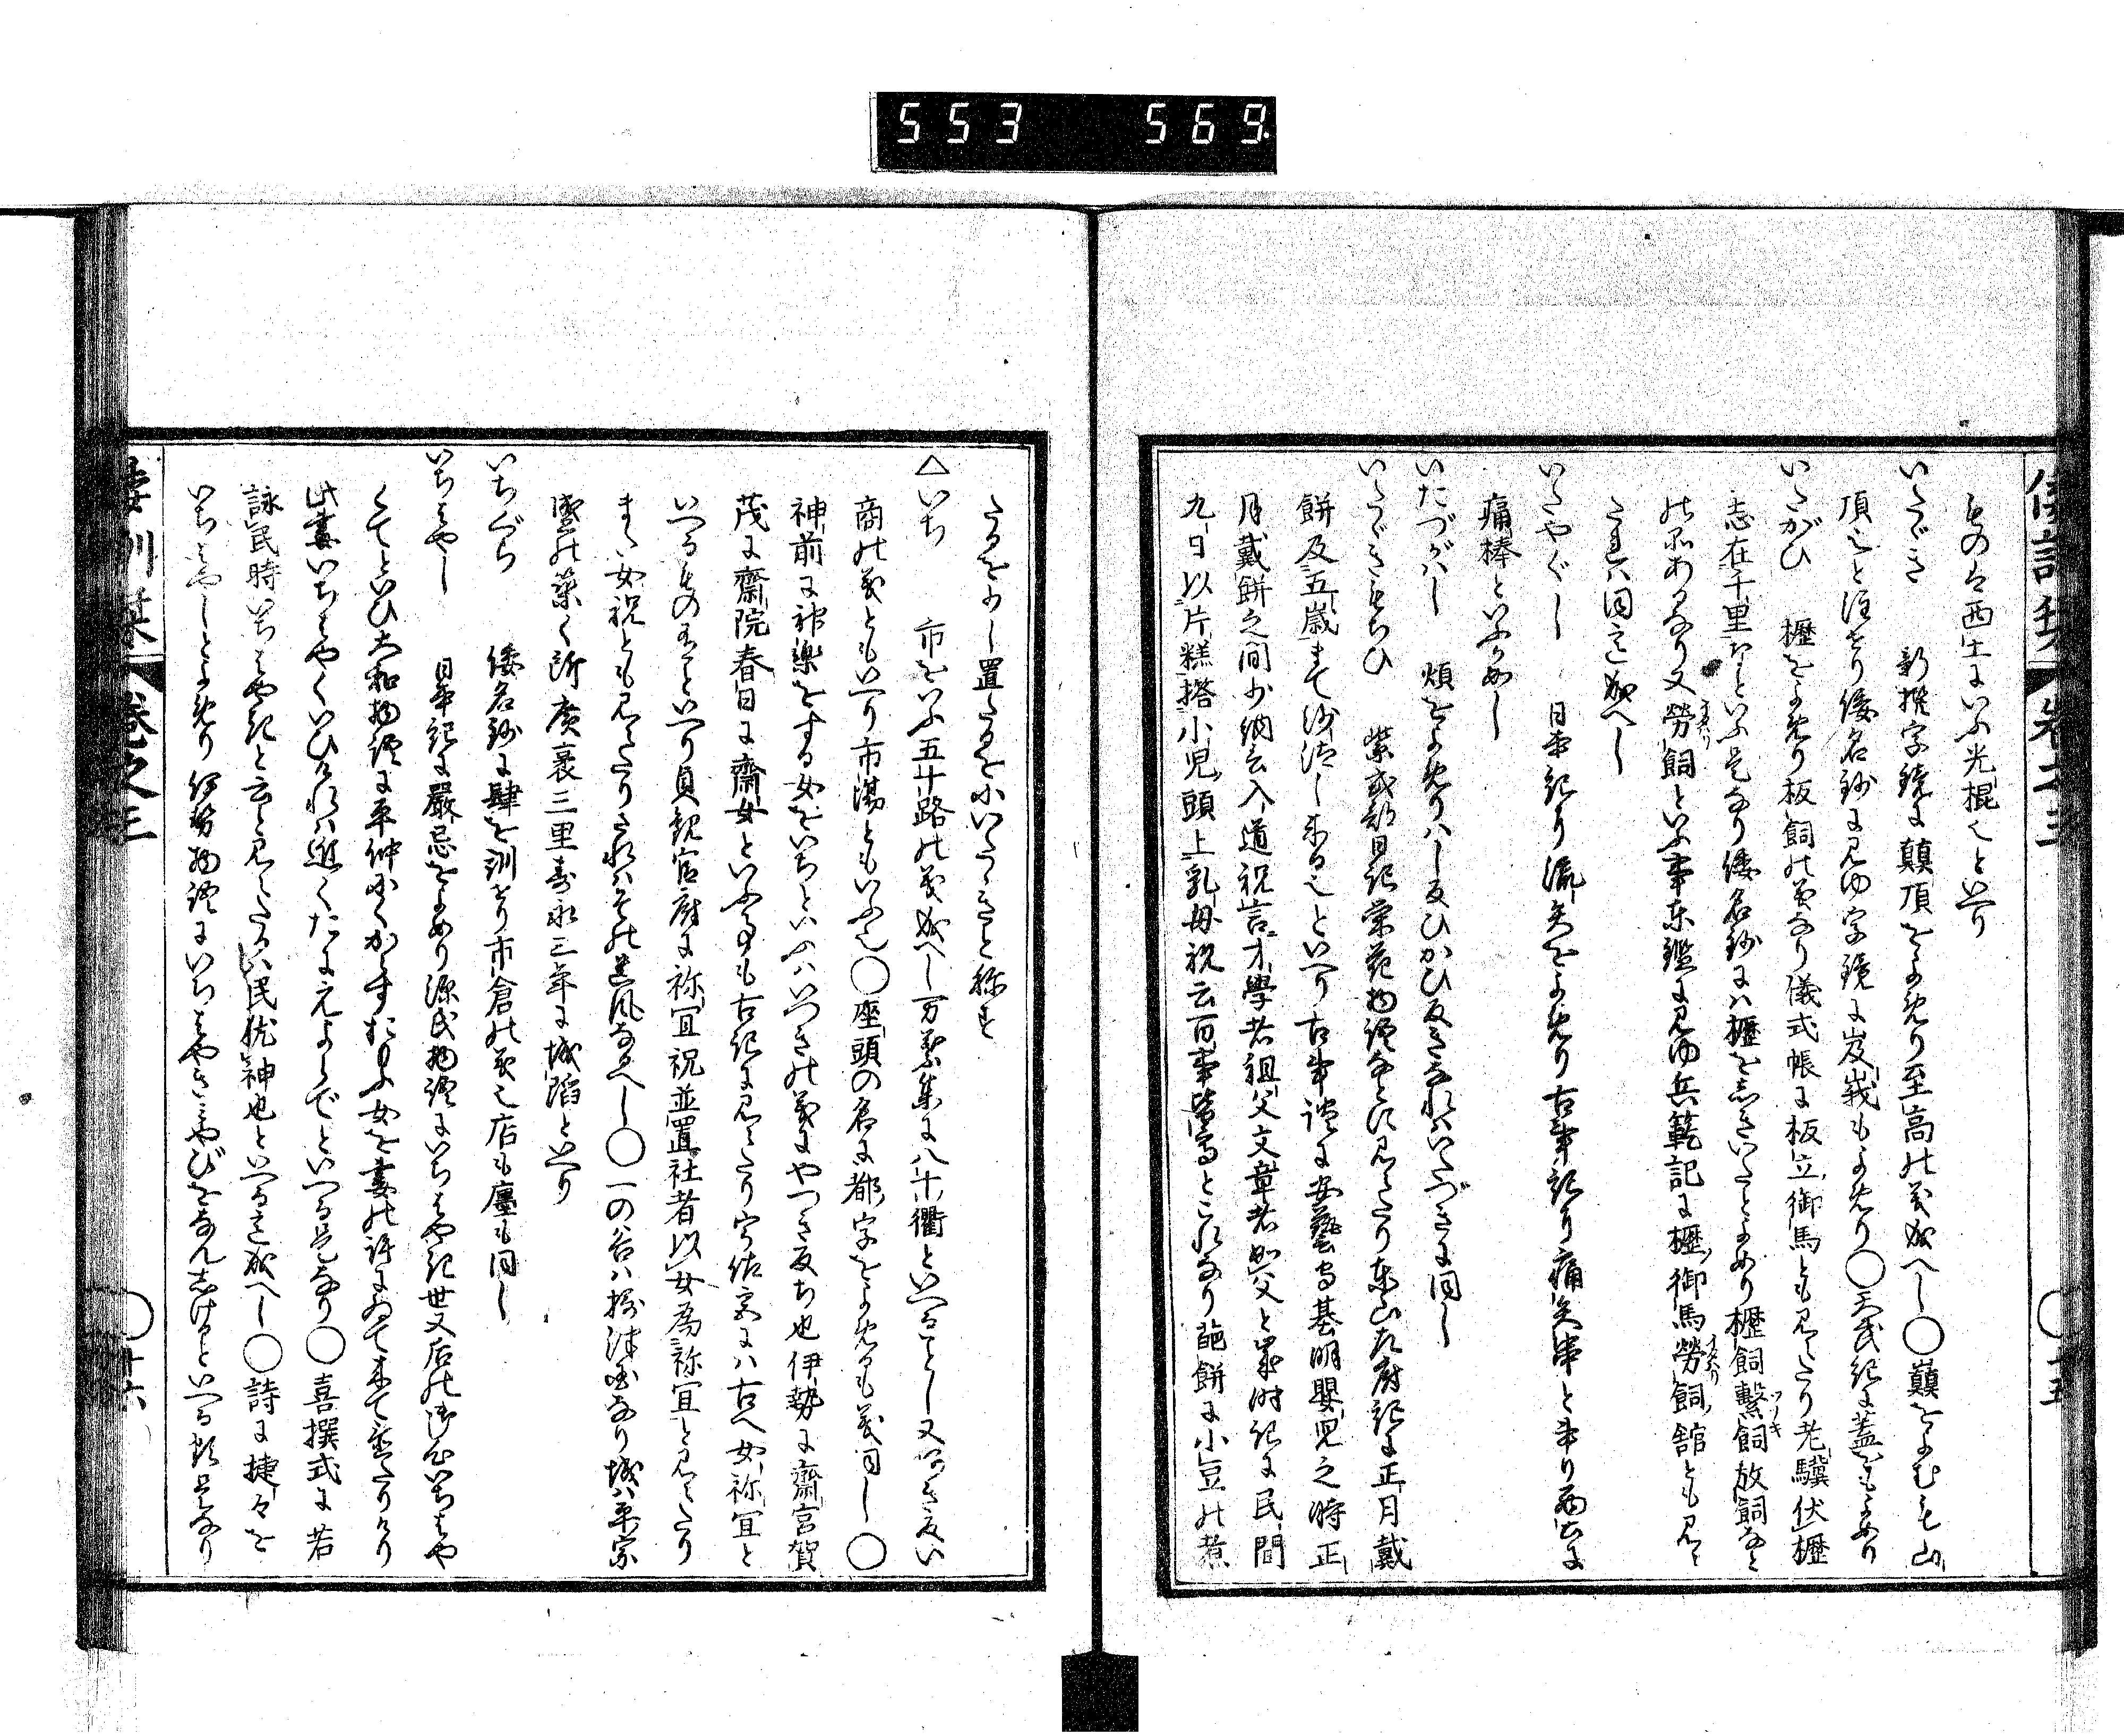 553 569
ものは西土にいふ光棍也といへり
いたゞき 新撰字鏡に顛頂をよめり至高の義成へし◯巓をよむも山
頂也と注せり倭名鈔に見ゆ字鏡に岌峩もよめり◯天武紀に蓋をもよめり
いたがひ 櫪をよめり板飼の義なり儀式帳に板立御馬とも見えたり老驥伏櫪
志在千里なといふ是なり倭名鈔には櫪をしきいたとよめり櫪飼繫飼放飼なと
の品あるなり又勞飼といふ事東鑑に見ゆ兵範記に櫪御馬勞飼舘とも見え
たれは同し成へし
いたやぐし 日本紀に流矢をよめり古事記に痛矢串と書り西土に
痛棒といふかめし
いたづがはし 煩をよめりはし反ひかひ反きなれはいたづきに同し
いたゞきもちひ 紫式部日記榮花物語なとに見えたり東山左府記に正月戴
餅及五歳まて沙汰し来る也といへり古事談に安藝守基明嬰児之時正
月戴餅之間少納言入道祝言才學者祖父文章者父と歳時記に民間
九日以片糕搭小児頭上乳母祝云百事皆高とこれなり葩餅に小豆の煮
たるをよし置たるを小いたゝきと称す
△いち 市をいふ五十路の義成へし万葉集に八十衢といへることし又つき反い
商の義ともいへり市場ともいふ也◯座頭の名に都字をよめるも義同し◯
神前に神樂をする女をいちといふはいつきの義にやつき反ち也伊勢に齋宮賀
茂に齋院春日に齋女といふ事も古記に見えたり宇佐宮には古へ女祢冝と
いへるものありといへり貞観官府に祢冝祝並置社者以女為祢冝と見えたり
また女祝とも見えたりされはその遺風なるへし◯一の谷は摂津国なり城は平家
盛の築く所廣袤三里壽永三年に城陷といへり
いちぐら 倭名鈔に肆を訓せり市倉の義也店も廛も同し
いちはやし 日本紀に嚴忌をよめり源氏物語にいちはやき世又后の御心いちはや
くてといひ大和物語に平仲にくからすおもふ女を妻の許にゐて来て置たりけり
此妻いちはやくいひけれは近くたにえよらでといへる是なり◯喜撰式に若
詠民時いちはやきと云と見えたるは民猶神也といへる意成へし◯詩に捷々を
いちはやしとよめり伊勢物語にいちはやきみやびをなんしけるといへる类是なり
倭訓栞 巻之三 十五
倭訓栞 巻之三 十六